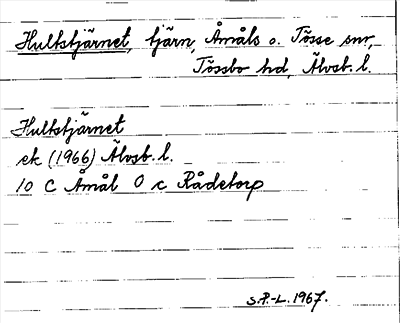 Hultstjärnet, tjärn, Åmåls o. Tösse snr,
Tössbo hd, Älvsb. l.
Hultstjärnet
ek (1966) Älvsb. l.
10 C Åmål O c Rådetorp
S.P.-L. 1967.